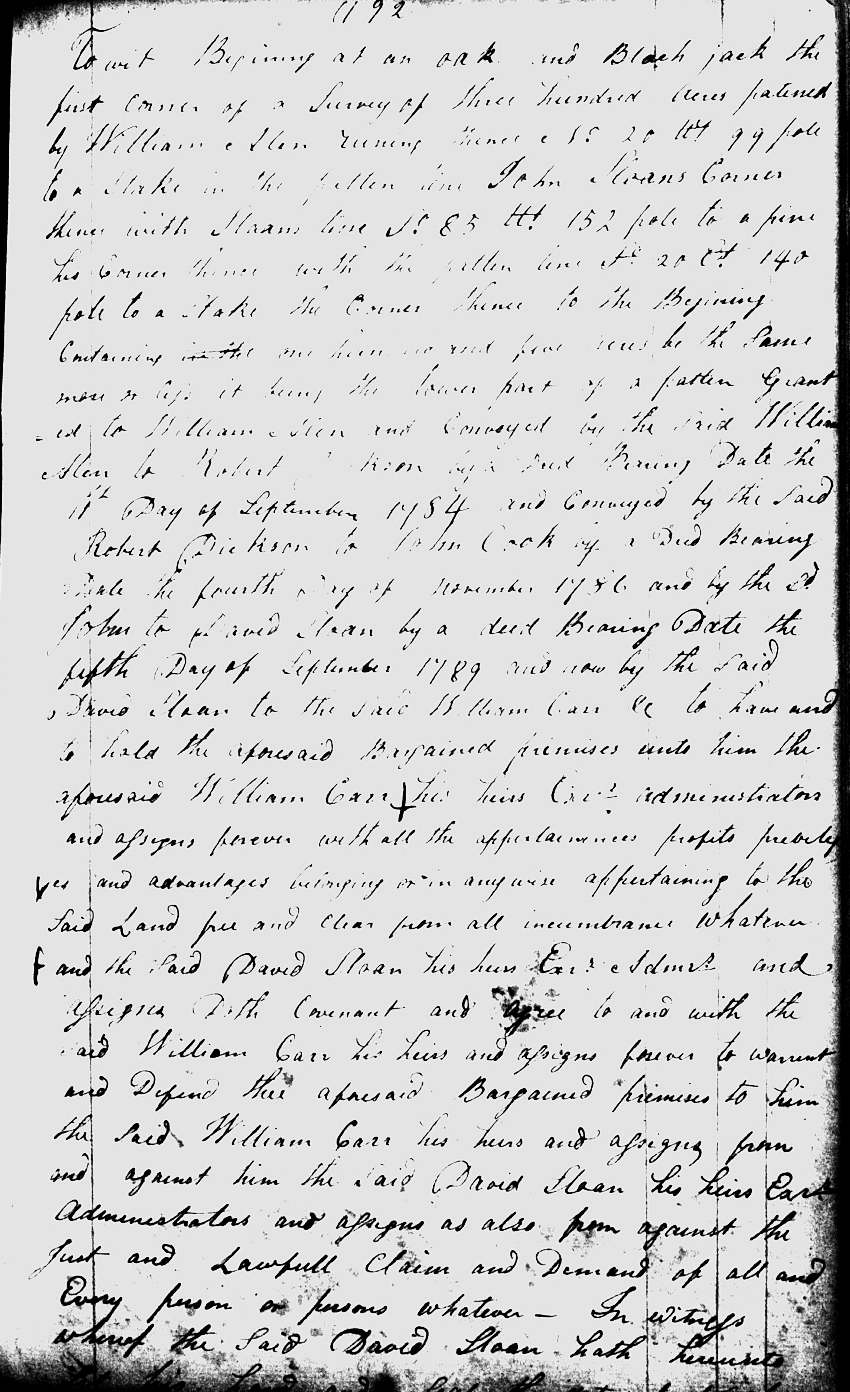 192
To wit Begining at an oak and Black jack the
first Corner of a Survey of three hundred acres patened
by William Alen runing thence So 20 Wt 99 pole
to a Stake in the patten line John Sloans Corner
thence with Sloans line So 85 Wt 152 pole to a pine
his Corner thence with the patten line 20 Et 140
pole to a Stake the Corner thence to the Begining
Containing one and five acres be the Same
more or less it being the lower part of a patten Grant
-ed to William Alen and Conveyed by the said William
Alen to Robert by a Deed Bearing Date the
11th Day of September 1784 and Conveyed by the Said
Robert Dickson to John Cook by a Deed Bearing
Date the fourth Day of November 1786 and by the Sd
John to David Sloan by a deed Bearing Date the
fifth Day of September 1789 and now by the Said
David Sloan to the said William Carr &c to have and
to hold the aforesaid Bargained premises unto him the
aforesaid William Carr his heirs Exrs administrators
and assigns forever with all the appertainences profits priveleg
es and advantages belonging or in any wise appertaining to the
Said Land free and Clear from all incumbrance whatever
and the Said David Sloan his heirs Exrs Admrs and
assigns Doth Covenant and agree to and with the
said William Carr his heirs and assigns forever to warrent
and Defend thee aforesaid Bargained premises to him
the Said William Carr his heirs and assigns from
and against him the Said David Sloan his heirs Exrs
Administrators and assigns as also from against the
Just and Lawfull Claim and Demand of all and
Every person or persons whatever — In witness
whereof the Said David Sloan hath hereunto